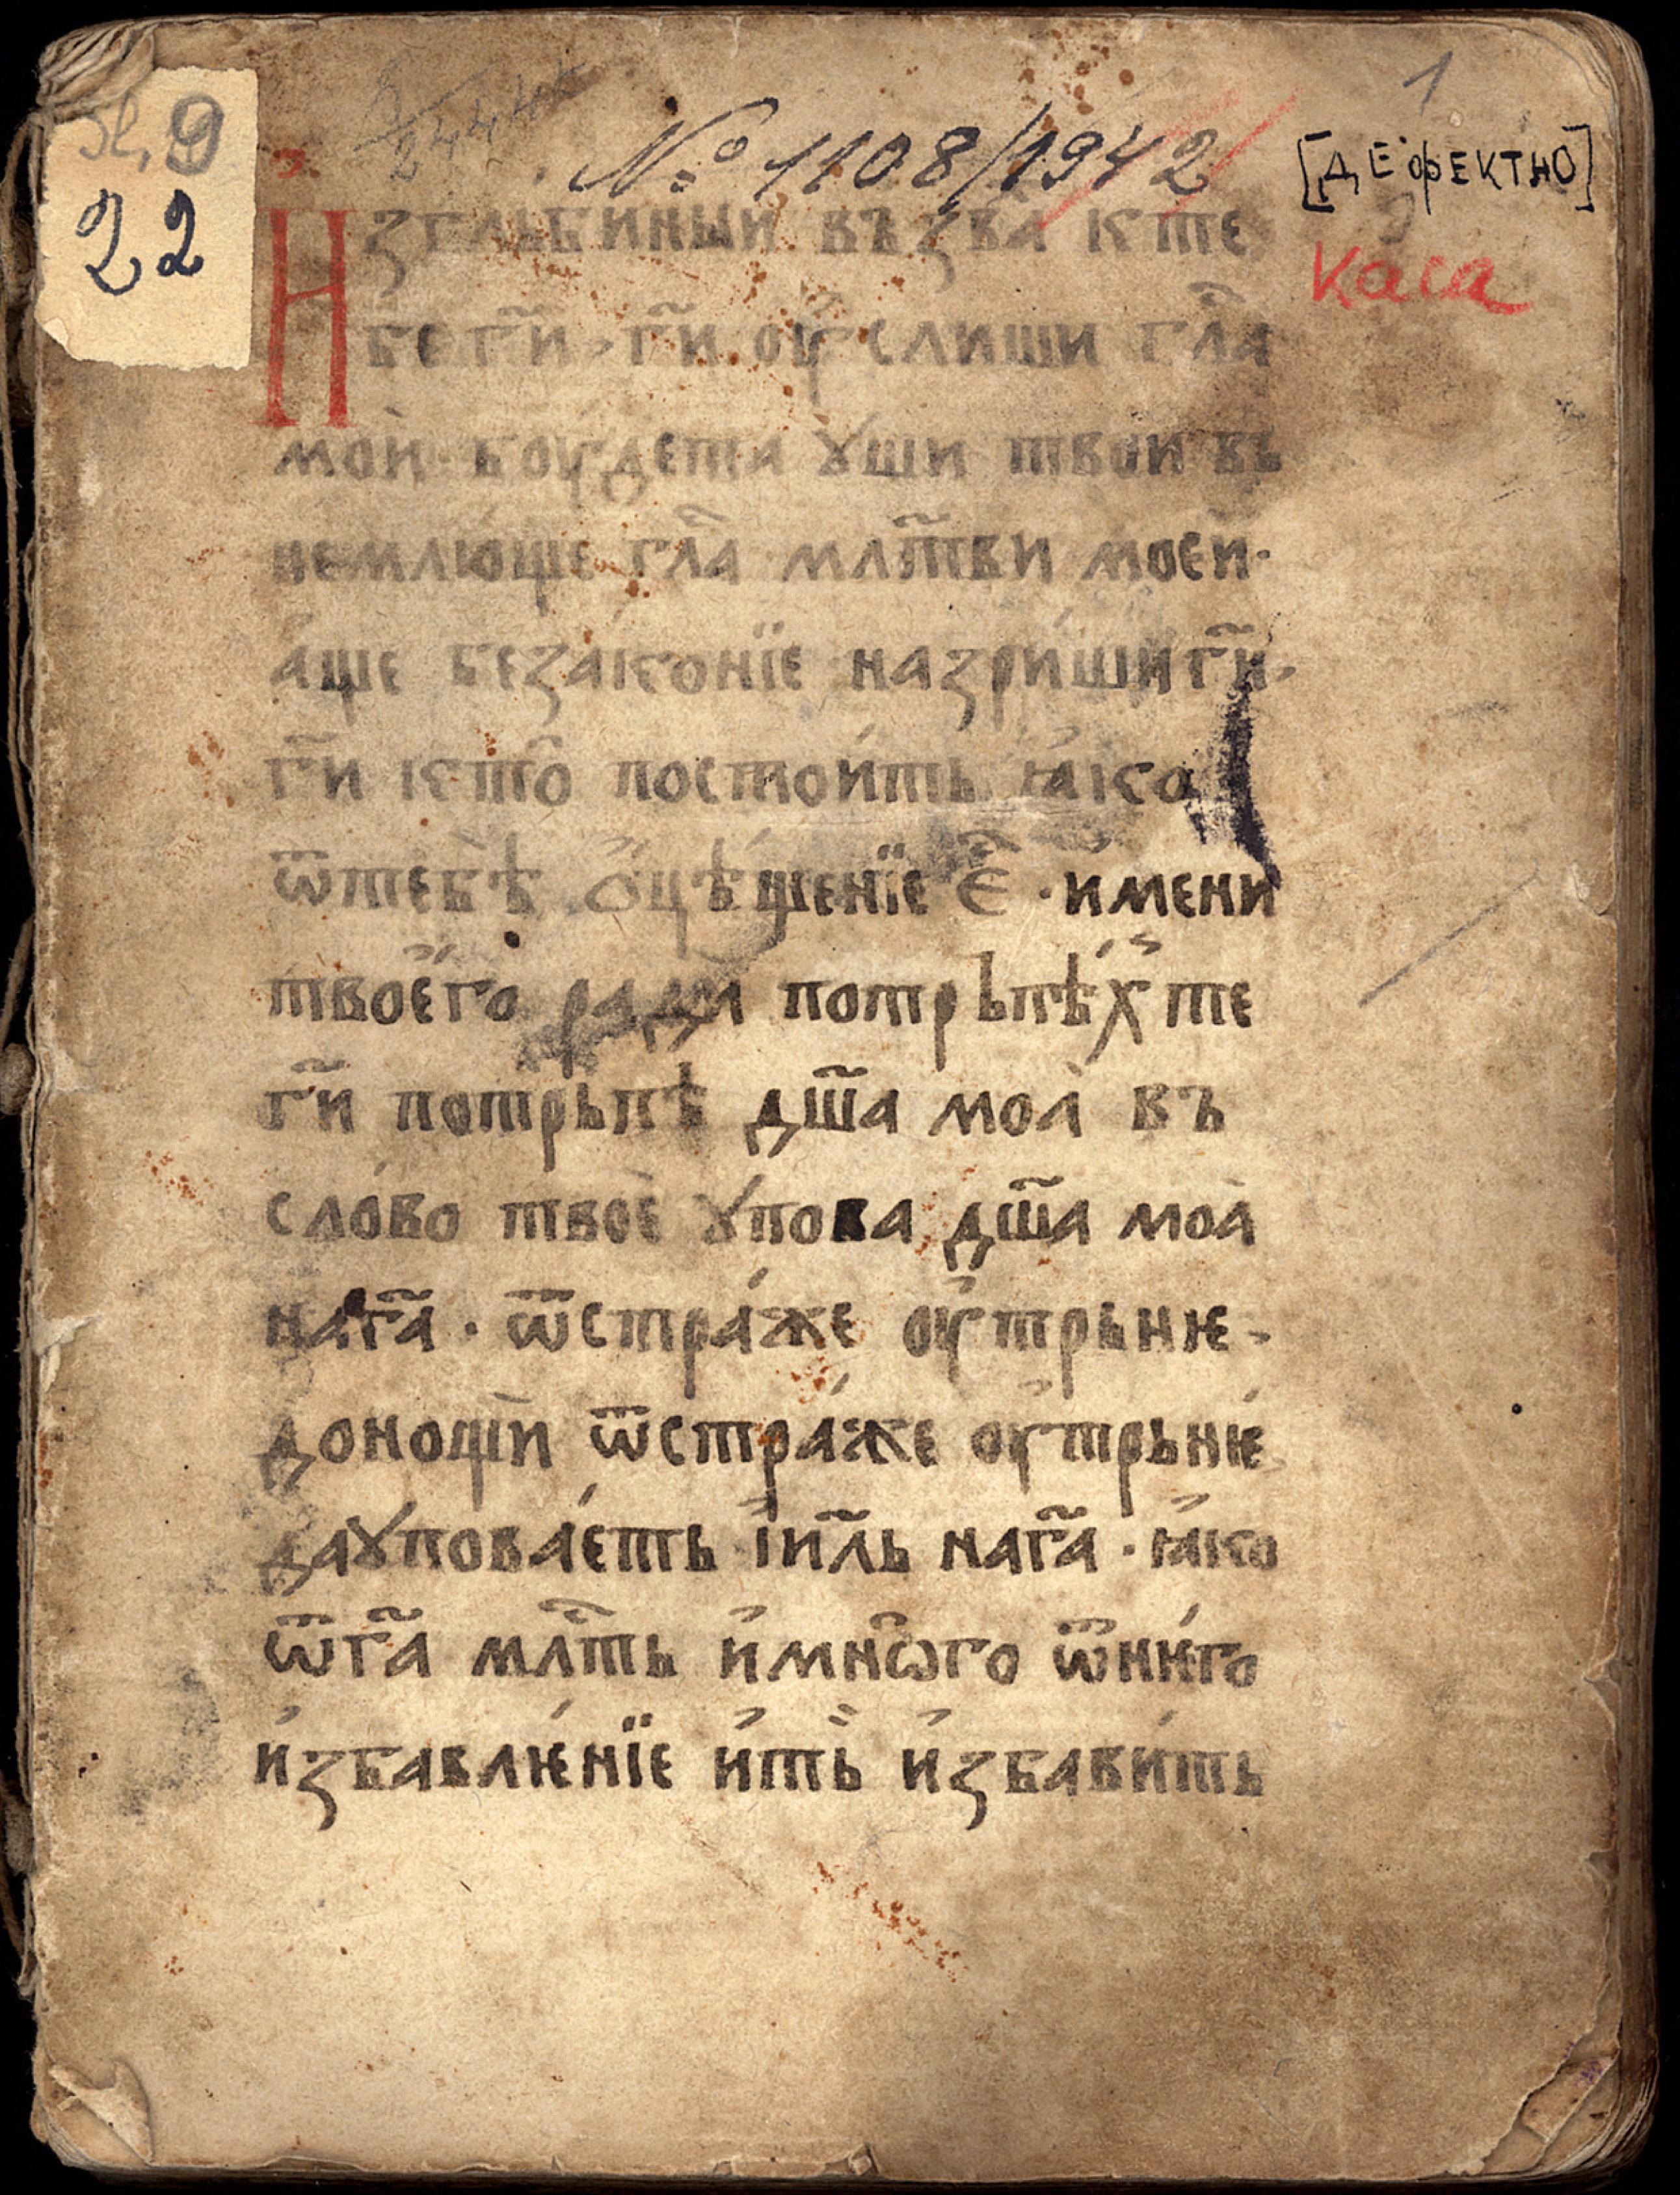 22
№ 1108/1942
1
[ДЕФЕКТНО]
каса
Изгльбиный възва̀ кте
бегп҃и· гп҃и оуслиши гл҃а
мой· боудета ꙋши твои въ
немлюще гл҃а мл҃тви моеи·
а́ще беꙁако́нїе наꙁри́шигп҃и·
гп҃и кто̑ постои́ть ꙗ́ко
ѿтебѣ̀ ѻ҆цѣщенїе є҃· и҆мени
твоего̀ ради потрьпѣ́х те
гп҃и потрьпѣ̀ дш҃а моꙗ̀ въ
сло́во твоѐ ꙋпова дш҃а моа̀
наг҃а· ѿстра́же оу҆трьнѥ·
доно́щи ѿстра́же оу҆трьнѥ
даꙋпова́еть і҆ил҃ь наг҃а· ꙗ́ко
ѿг҃а мл҃ть и҆мнѡ̑го ѿнѥ́го
и҆ꙁбавлѥ́нїе и҆ть̀ и҆ꙁбави́ть